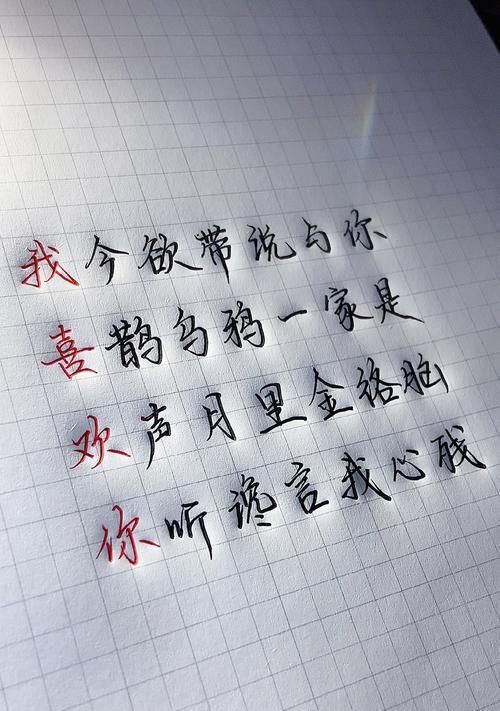 我今欲带说与你
喜鹊乌鸦一家是
欢声月里金络脑
你听谗言我心残